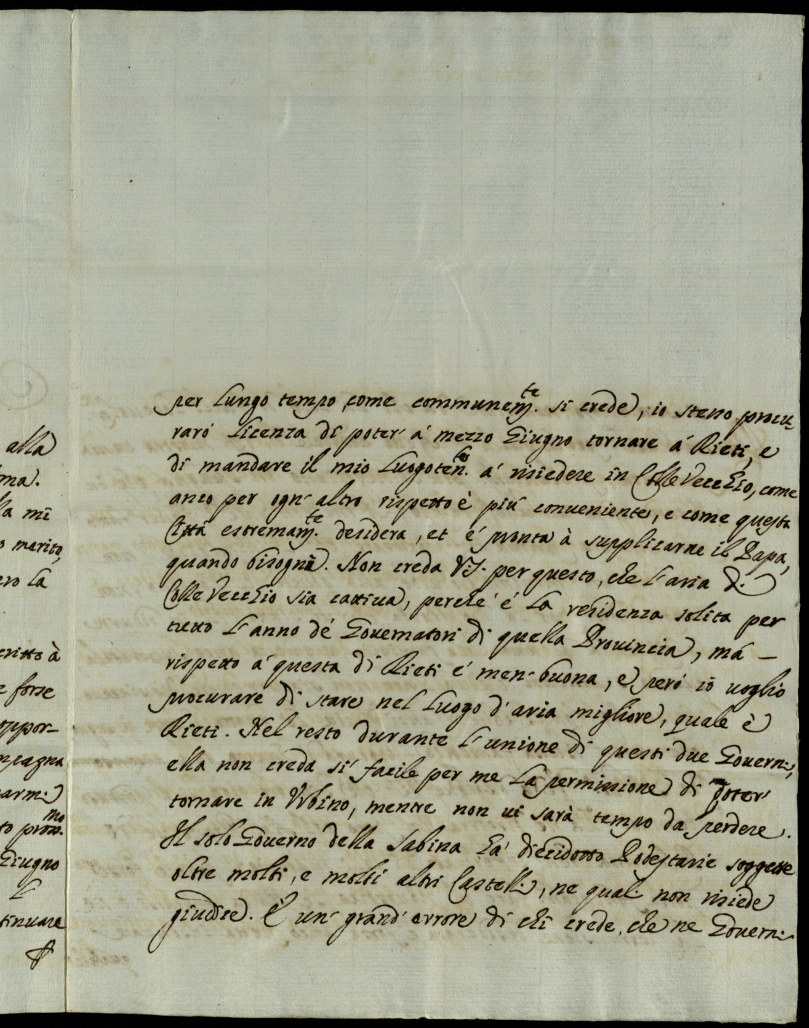 alla
ma.
la mi
o merito,
ero la
critto à
e forse
oppor-
mpagna
armi
to pross.mo
Giugno
L
tinuare
per lungo tempo, come communem.te si crede, io stesso procu-
rarò licenza di poter' à mezzo Giugno tornare à Rieti, e
di mandare il mio Luogoten.e à risiedere in Colle Vecchio, come
anco per ogn' altro rispetto è più conveniente, e come questa
Città estremam.te desidera, et è pronta à supplicarne il Papa,
quando bisogni. Non creda V.S. per questo, che l'aria di
Colle Vecchio sia cattiva, perche è la residenza solita per
tutto l'anno de' Governatori di quella Provincia, mà –
rispetto à questa di Rieti è men' buona, e però io voglio
procurare di stare nel luogo d'aria migliore, quale è
Rieti. Nel resto durante l'unione di questi due Governi,
ella non creda sì facile per me la permissione di poter'
tornare in Urbino, mentre non vi sarà tempo da perdere.
Il solo Governo della Sabina hà diecidotto Podestarie soggette
oltre molti, e molti altri Castelli, ne quali non risiede
giudice. È un' grand' errore di chi crede, che ne Governi